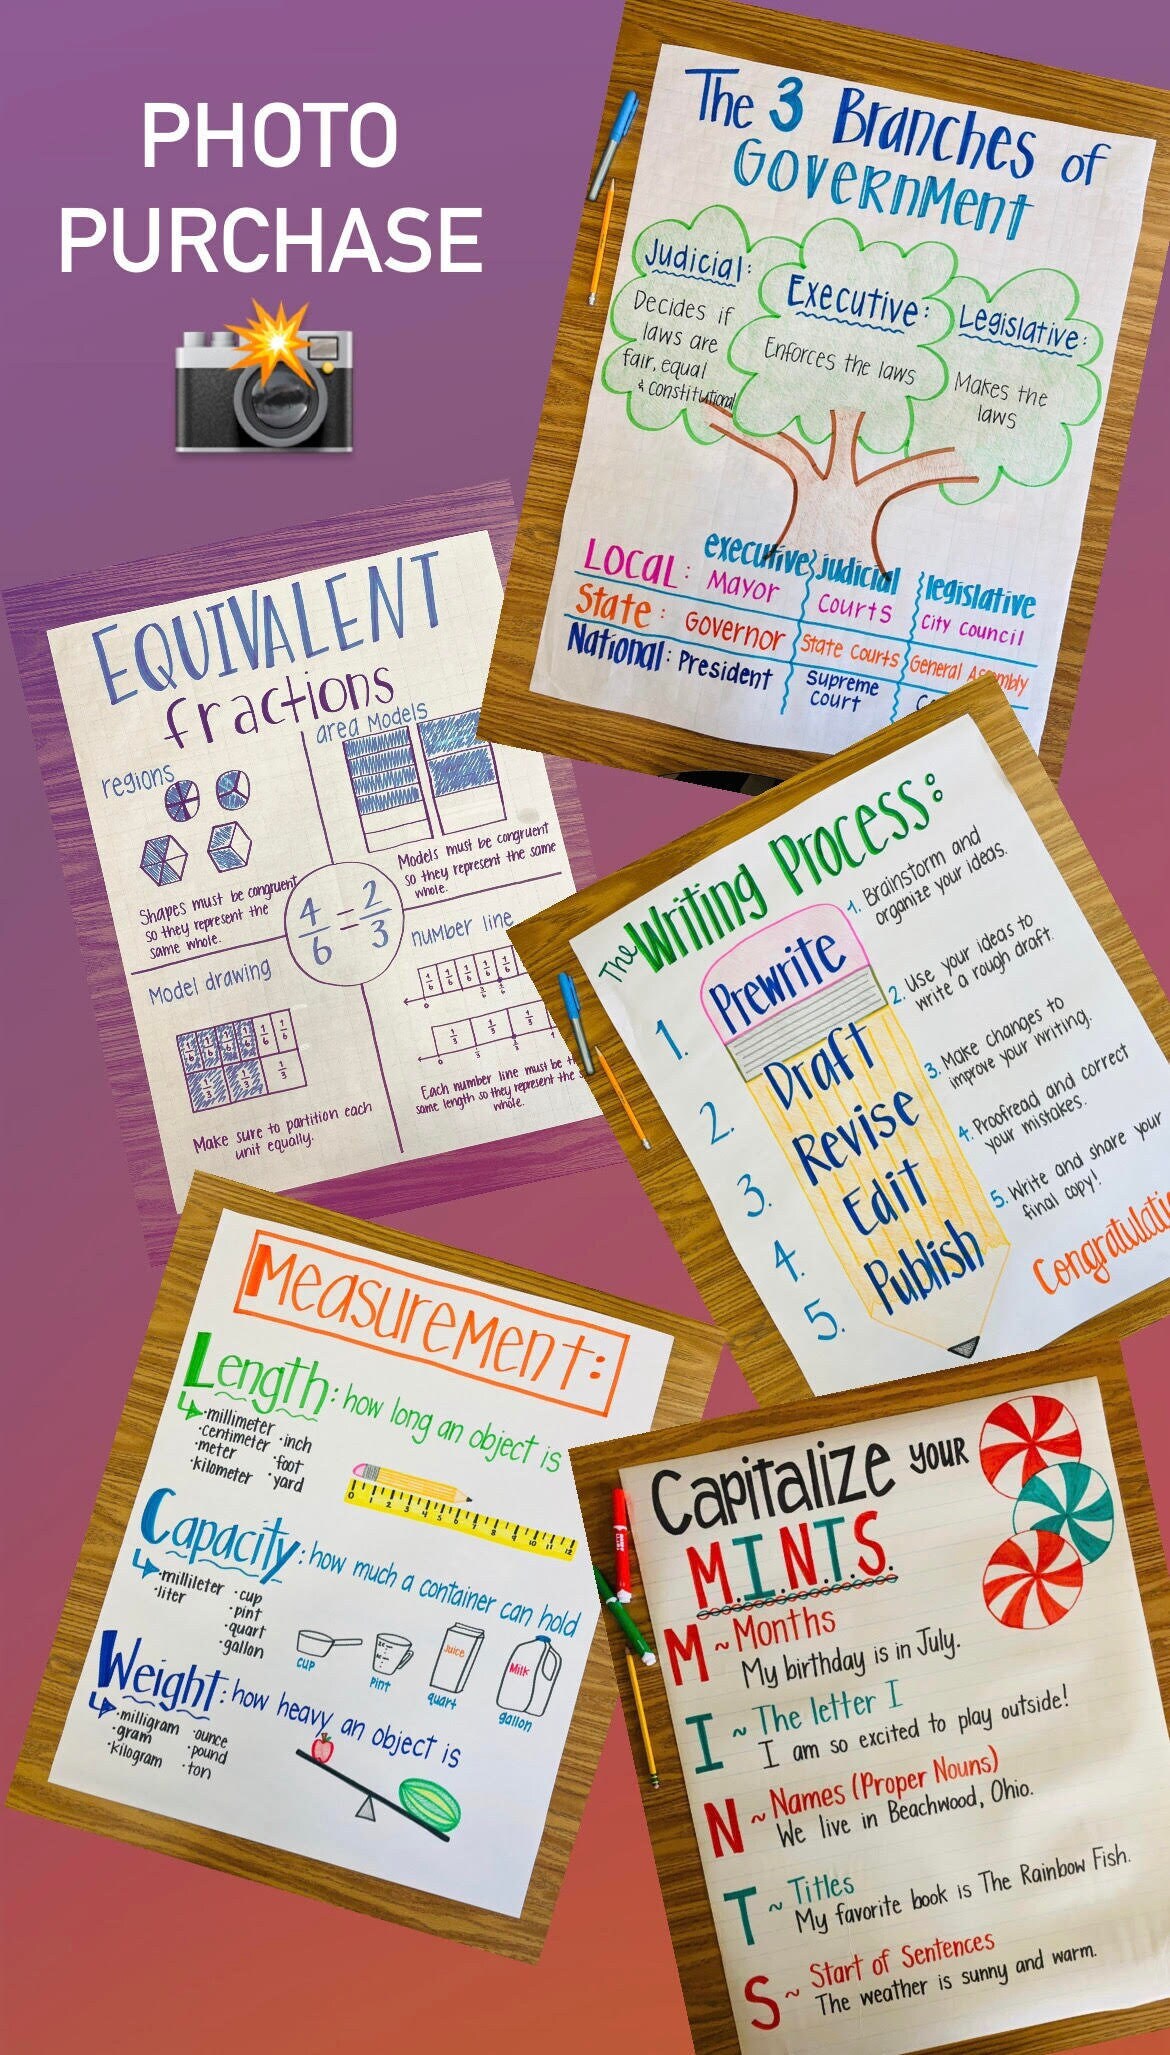 PHOTO
PURCHASE
The 3 Branches of
Government
Judicial:
Decides if
laws are
fair, equal
& constitutional
Executive:
Enforces the laws
Legislative:
Makes the
laws
executive judicial legislative
LOCAL: Mayor Courts City Council
State: Governor State Courts General Assembly
National: President Supreme
Court
EQUIVALENT
fractions
regions
Shapes must be congruent
so they represent the
same whole.
area Models
Models must be congruent
so they represent the same
whole.
4/6 = 2/3
Model drawing
1/6 1/6 1/6 1/6 1/6 1/6
1/3 1/3 1/3
Make sure to partition each
unit equally.
number line
1/6 1/6 1/6 1/6 1/6
0
1/3 1/3 1/3
0
Each number line must be
same length so they represent the
whole.
The Writing Process:
1. Prewrite
2. Draft
3. Revise
4. Edit
5. Publish
1. Brainstorm and
organize your ideas.
2. Use your ideas to
write a rough draft.
3. Make changes to
improve your writing.
4. Proofread and correct
your mistakes.
5. Write and share your
final copy!
Measurement:
Length: how long an object is
·millimeter ·inch
·centimeter ·foot
·meter ·yard
·kilometer
0 1 2 3 4 5 6 7 8 9 10 11 12
Capacity: how much a container can hold
·millileter ·cup
·liter ·pint
·quart
·gallon
cup
pint
Juice
quart
Milk
gallon
Weight: how heavy an object is
·milligram ·ounce
·gram ·pound
·kilogram ·ton
Capitalize your
M.I.N.T.S.
M~Months
My birthday is in July.
I ~ The letter I
I am so excited to play outside!
N~ Names (Proper Nouns)
We live in Beachwood, Ohio.
T ~ Titles
My favorite book is The Rainbow Fish.
S~ Start of Sentences
The weather is sunny and warm.